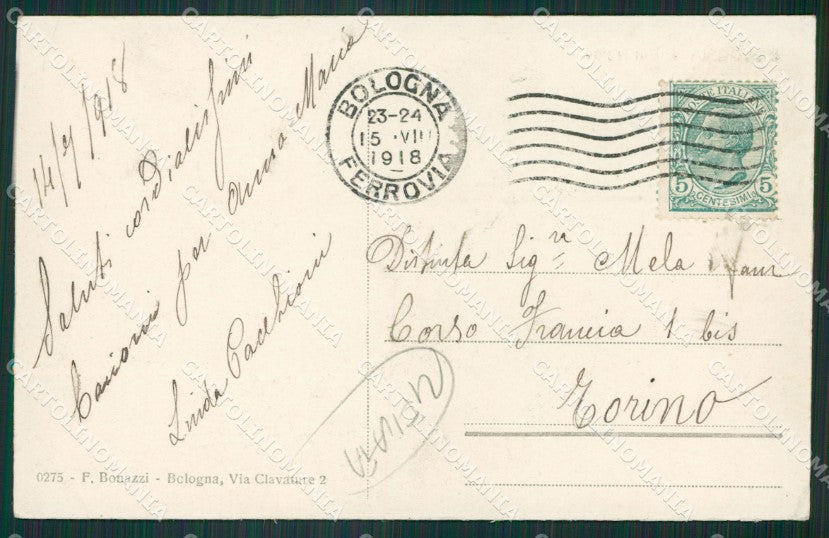 14/7/918
Saluti cordialissimi
Bacioni per Anna Maria
Linda Pacchioni
0275 - F. Bonazzi - Bologna, Via Clavature 2
BOLOGNA
23-24
15 VII
1918
FERROVIA
POSTE ITALIANE
5 CENTESIMI 5
Distinta Sig.ra Mela
Corso Francia 1 bis
Torino
CARTOLINOMANIA